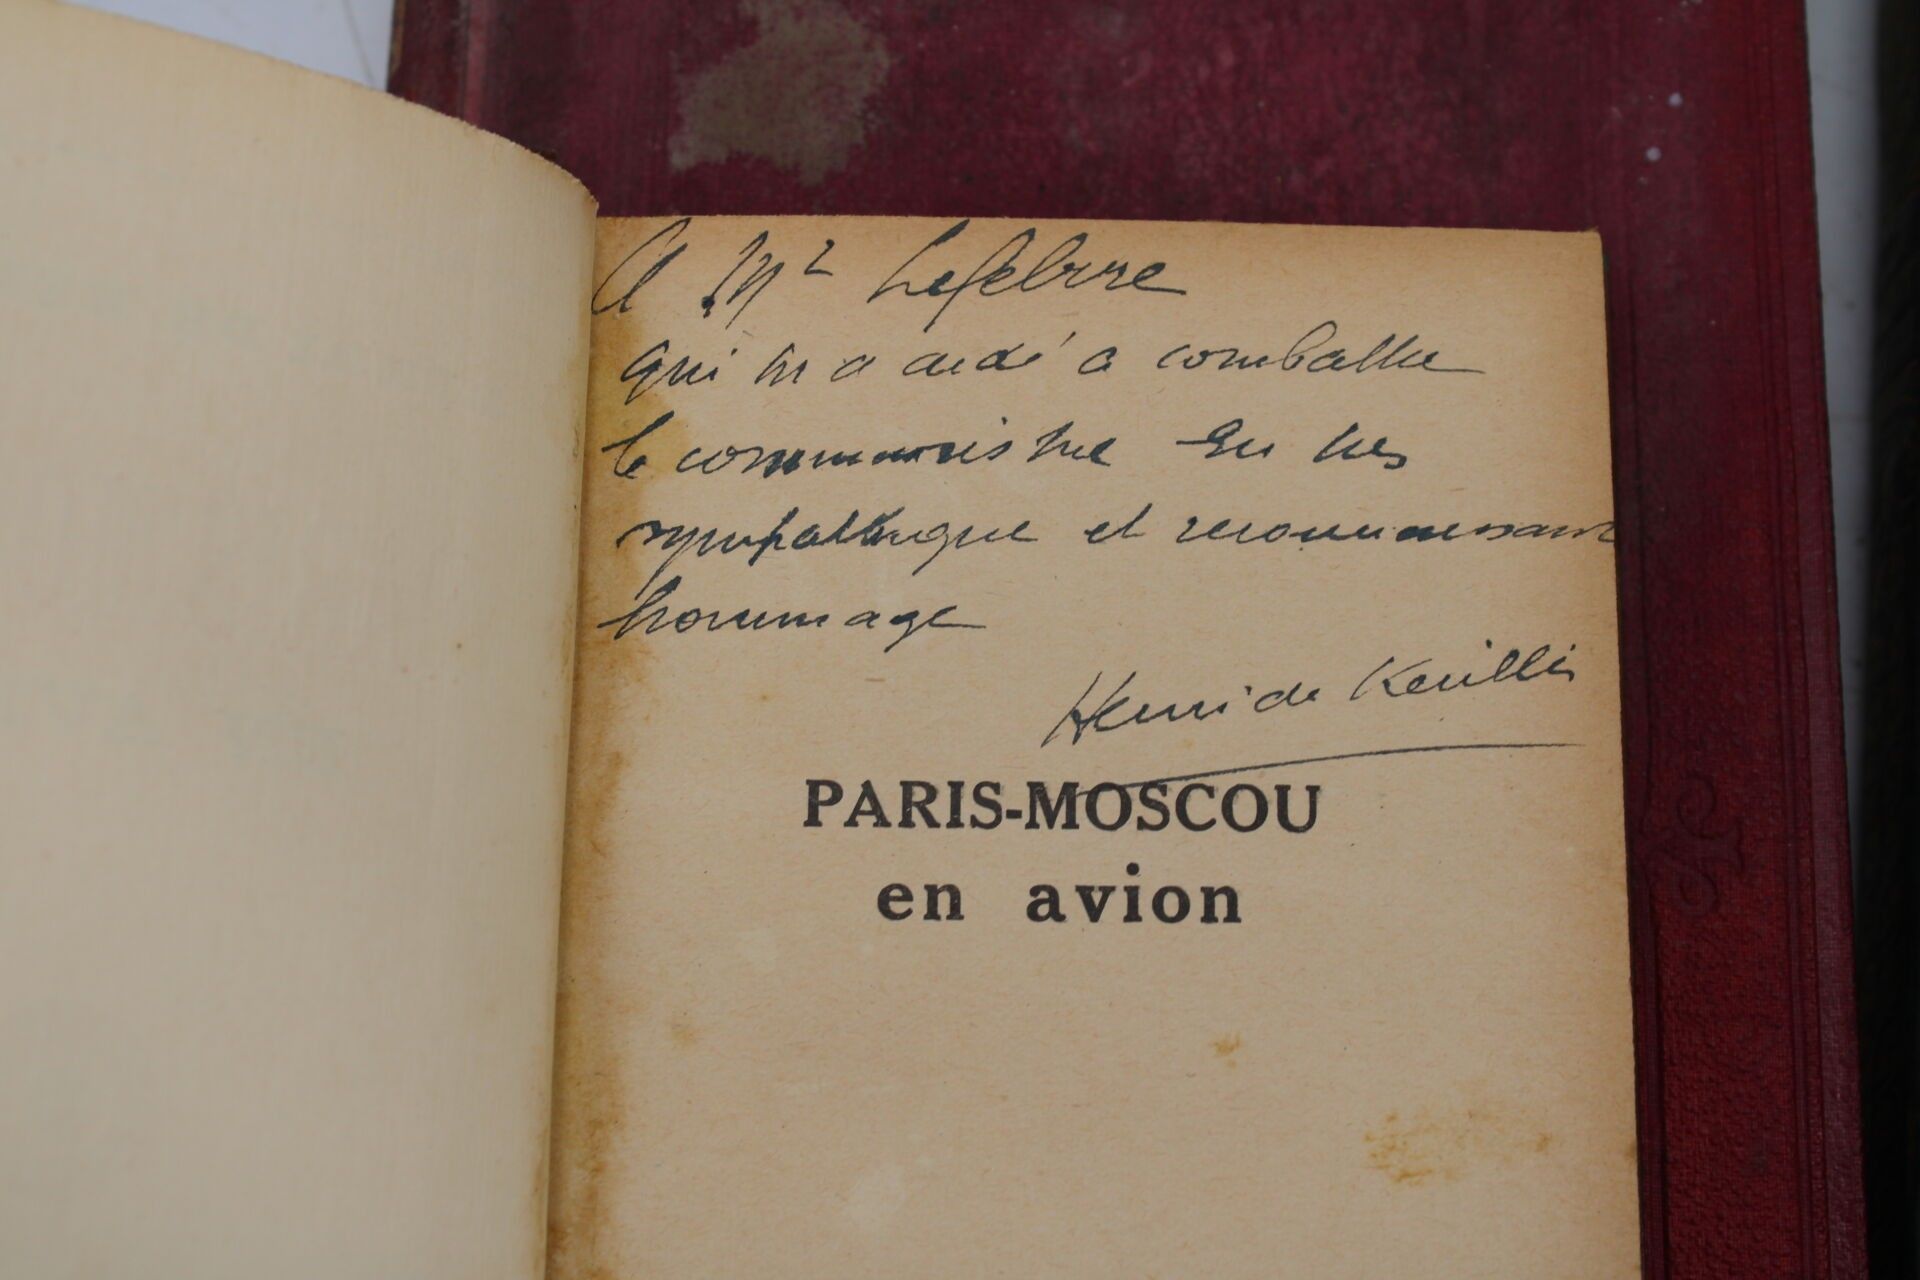 A Mr Lefebvre
qui m'a aidé à combattre
le communisme en très
sympathique et reconnaissant
hommage
Henri de Kerillis
PARIS-MOSCOU
en avion